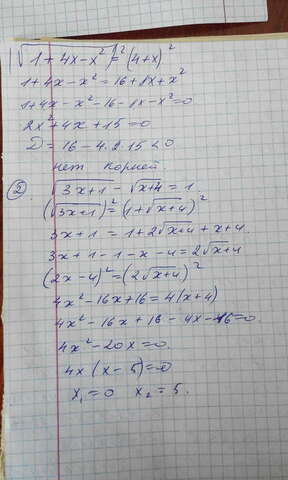 (√(1+4x-x²))² = (4+x)²
1+4x-x² = 16+8x+x²
1+4x-x²-16-8x-x²=0
2x²+4x+15=0
D=16-4·2·15<0
нет корней.
② √(3x+1) - √(x+4) = 1.
(√(3x+1))² = (1+√(x+4))²
3x+1 = 1+2√(x+4)+x+4.
3x+1-1-x-4=2√(x+4)
(2x-4)²=(2√(x+4))²
4x²-16x+16=4(x+4)
4x²-16x+16-4x-16=0
4x²-20x=0.
4x(x-5)=0
x₁=0 x₂=5.